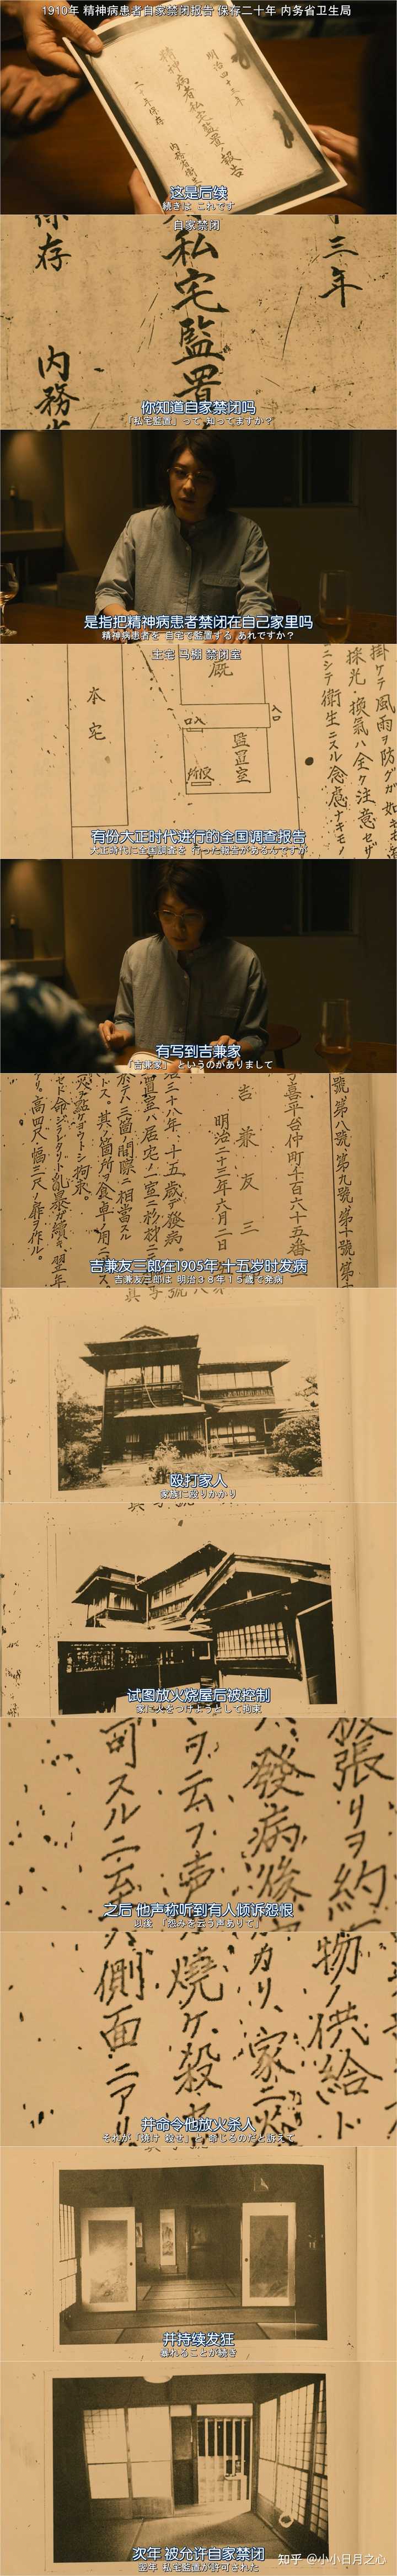 1910年 精神病患者自家禁闭报告 保存二十年 内务省卫生局
明治四十三年
精神病者私宅監置報告
二十年保存
内務省衛生
这是后续
続きは これです
自家禁闭
三年
私宅監置
保存
内務省
你知道自家禁闭吗
「私宅監置」って 知ってますか？
是指把精神病患者禁闭在自己家里吗
精神病患者を 自宅で監置する あれですか？
主宅 马棚 禁闭室
掛ケテ風雨ヲ防グガ如キモ
採光 換氣ハ全ク注意セザ
ニシテ衛生ニスル念慮ナキモノ
厩
入口
口入
監置室
便所
本宅
有份大正时代进行的全国调查报告
大正時代に全国調査を 行った報告があるんですが
有写到吉兼家
「吉兼家」 というのがありまして
號第八號第九號第十號第
喜平台仲町千百六十五番
吉兼友三
明治二十三年六月二日
三十八年、十五歳デ發病
吉兼友三郎在1905年 十五岁时发病
吉兼友三郎は 明治３８年１５歳で発病
殴打家人
家族に殴りかかり
试图放火烧屋后被控制
家に火をつけようとして拘束
張リヲ約
發病後
ヲ云フ声
可スルニ至
之后 他声称听到有人倾诉怨恨
以後 「怨みを云う声ありて」
物ノ供給ト
カリ、家ニ火
燒ケ殺セ
側面ニアリ
并命令他放火杀人
それが「焼け 殺せ」と 命じるのだと訴えて
并持续发狂
暴れることが続き
次年 被允许自家禁闭
翌年 私宅監置が許可された
知乎 @小小日月之心